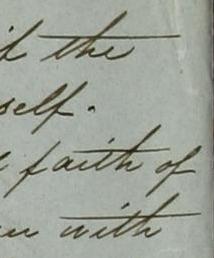 if the
self.
faith of
with